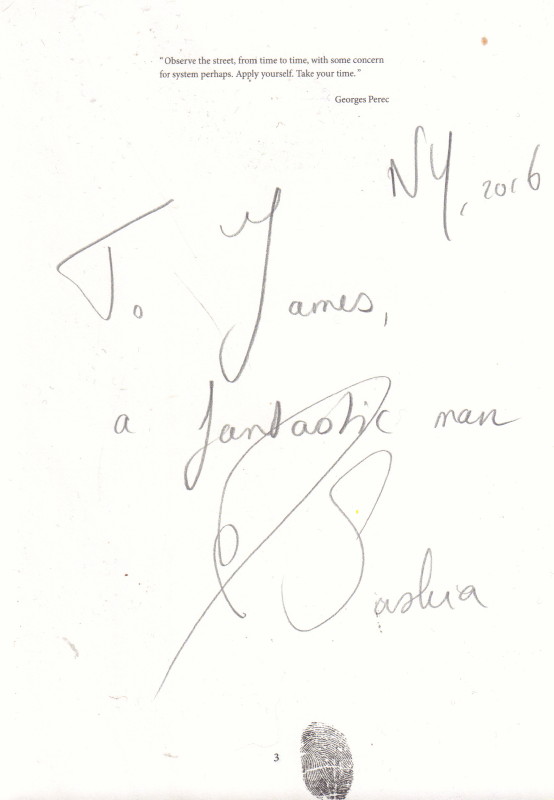 "Observe the street, from time to time, with some concern
for system perhaps. Apply yourself. Take your time."
Georges Perec
NY, 2016
To James,
a fantastic man
Saskia
3